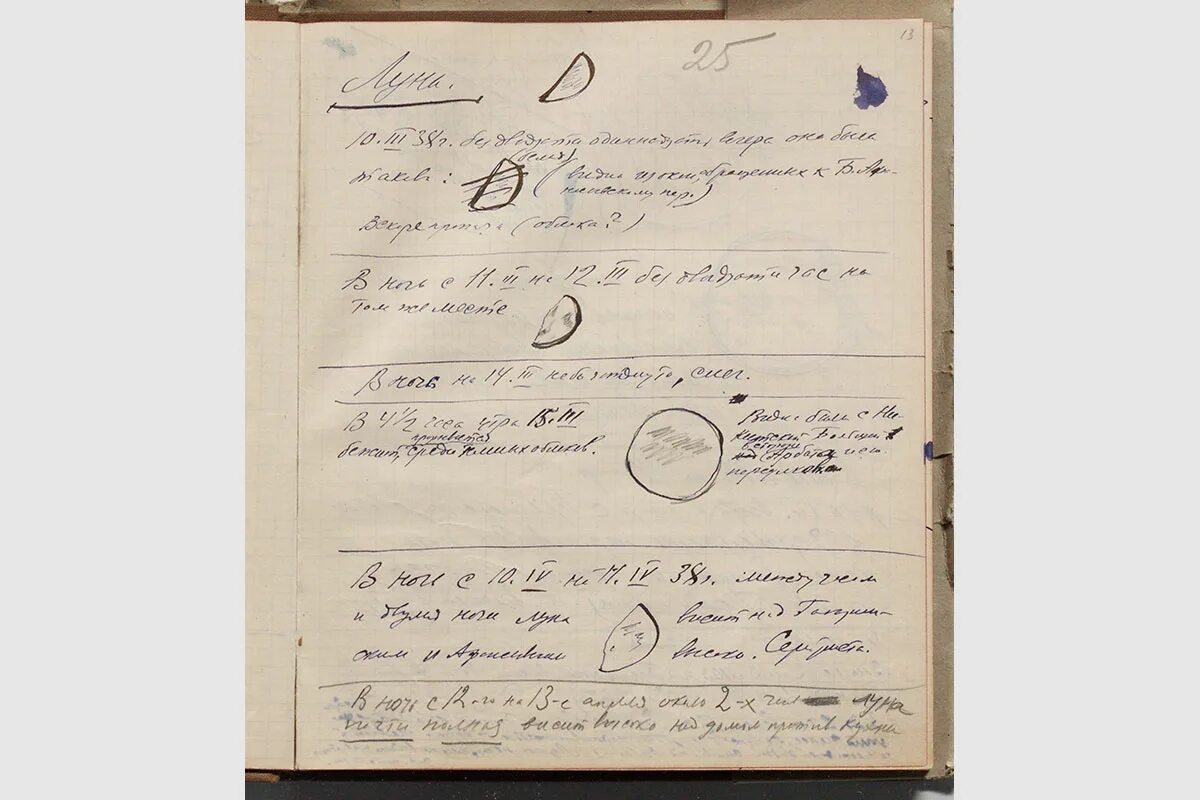 13
25
Луна.
10.III 38 г. без двадцати одиннадцать вечера она была
(белая)
такая: (видна из окон, обращенных к Б. Афа-
насьевскому пер.)
Вскоре пропала (облака?)
В ночь с 11.III на 12.III без двадцати час на
том же месте
В ночь на 14.III небо затянуто, снег.
В 4 1/2 часа утра 15.III
бежит, среди облаков.
Видна была с Ни-
китской Большой
Арбатом
переулком
В ночь с 10.IV на 11.IV 38 г. между часом
и двумя ночи луна висит над Гагарин-
ским и Афанасьевским высоко. Серебриста.
В ночь с 12-го на 13-е апреля около 2-х час луна
почти полная висит высоко над домом против кухни